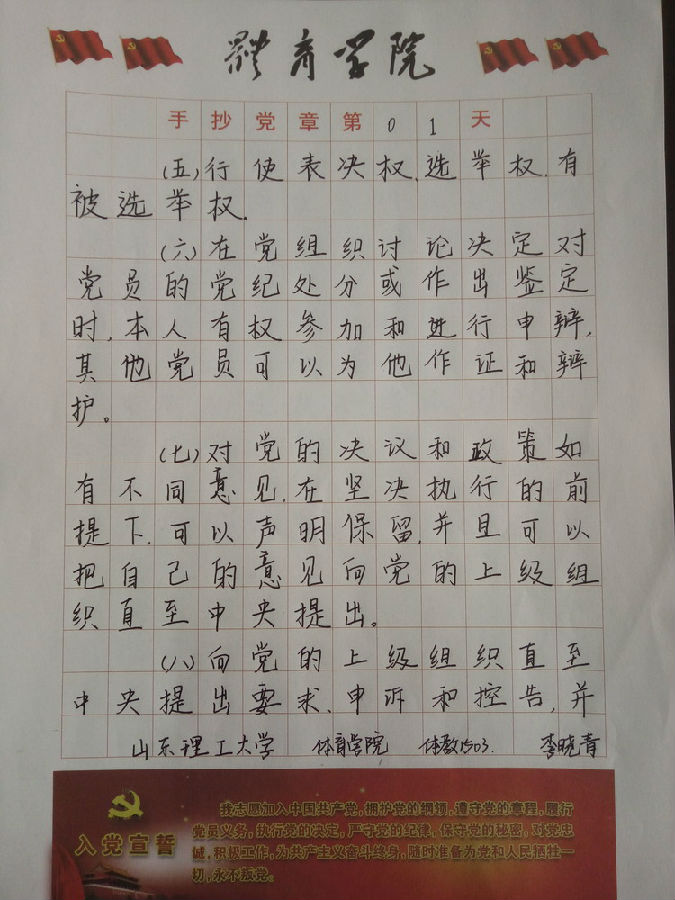 體育学院
手抄党章第01天
(五)行使表决权、选举权、有
被选举权.
(六)在党组织讨论决定对
党员的党纪处分或作出鉴定
时,本人有权参加和进行申辩,
其他党员可以为他作证和辩
护。
(七)对党的决议和政策如
有不同意见,在坚决执行的前
提下,可以声明保留,并且可以
把自己的意见向党的上级组
织直至中央提出。
(八)向党的上级组织直至
中央提出要求、申诉和控告,并
山东理工大学 体育学院 体教1503. 李晓青
入党宣誓
我志愿加入中国共产党,拥护党的纲领,遵守党的章程,履行
党员义务,执行党的决定,严守党的纪律,保守党的秘密,对党忠
诚,积极工作,为共产主义奋斗终身,随时准备为党和人民牺牲一
切,永不叛党。